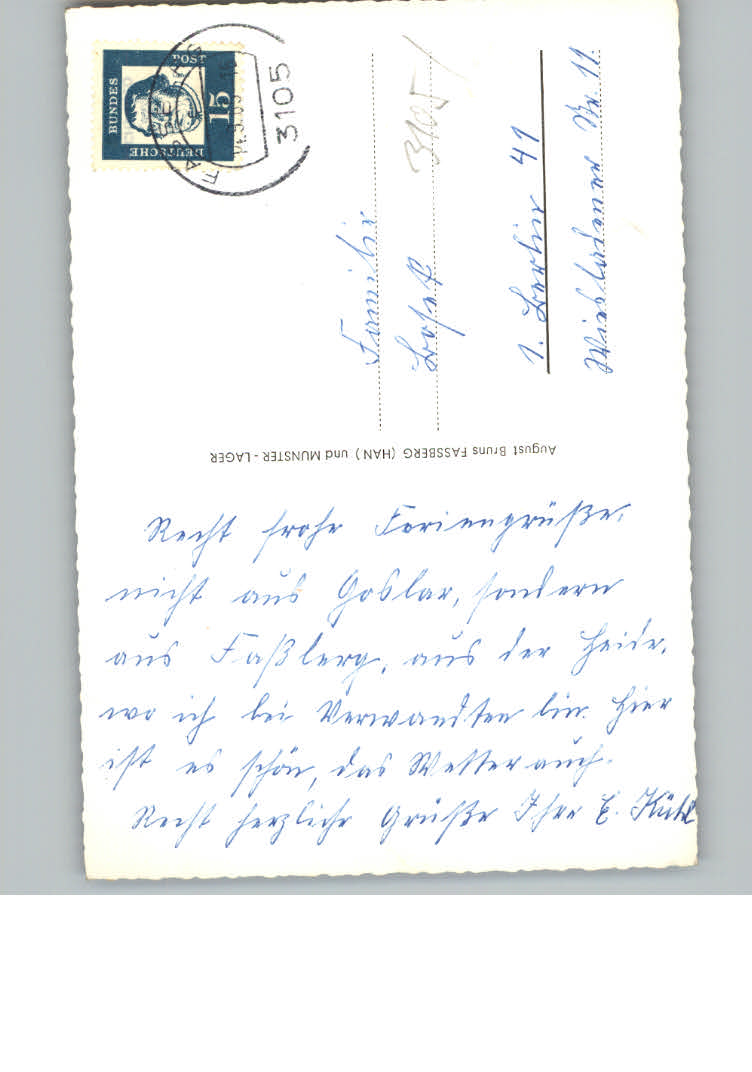 DEUTSCHE
BUNDES
POST
15
FASSBERG
3105
3105
Familie
1. Berlin 41
Wiesbadener Str 11
August Bruns FASSBERG (HAN) und MUNSTER-LAGER
Recht frohe Feriengrüße,
nicht aus Goslar, sondern
aus Faßberg, aus der Heide,
wo ich bei Verwandten bin. Hier
ist es schön, das Wetter auch.
Recht herzliche Grüße Ihre E.